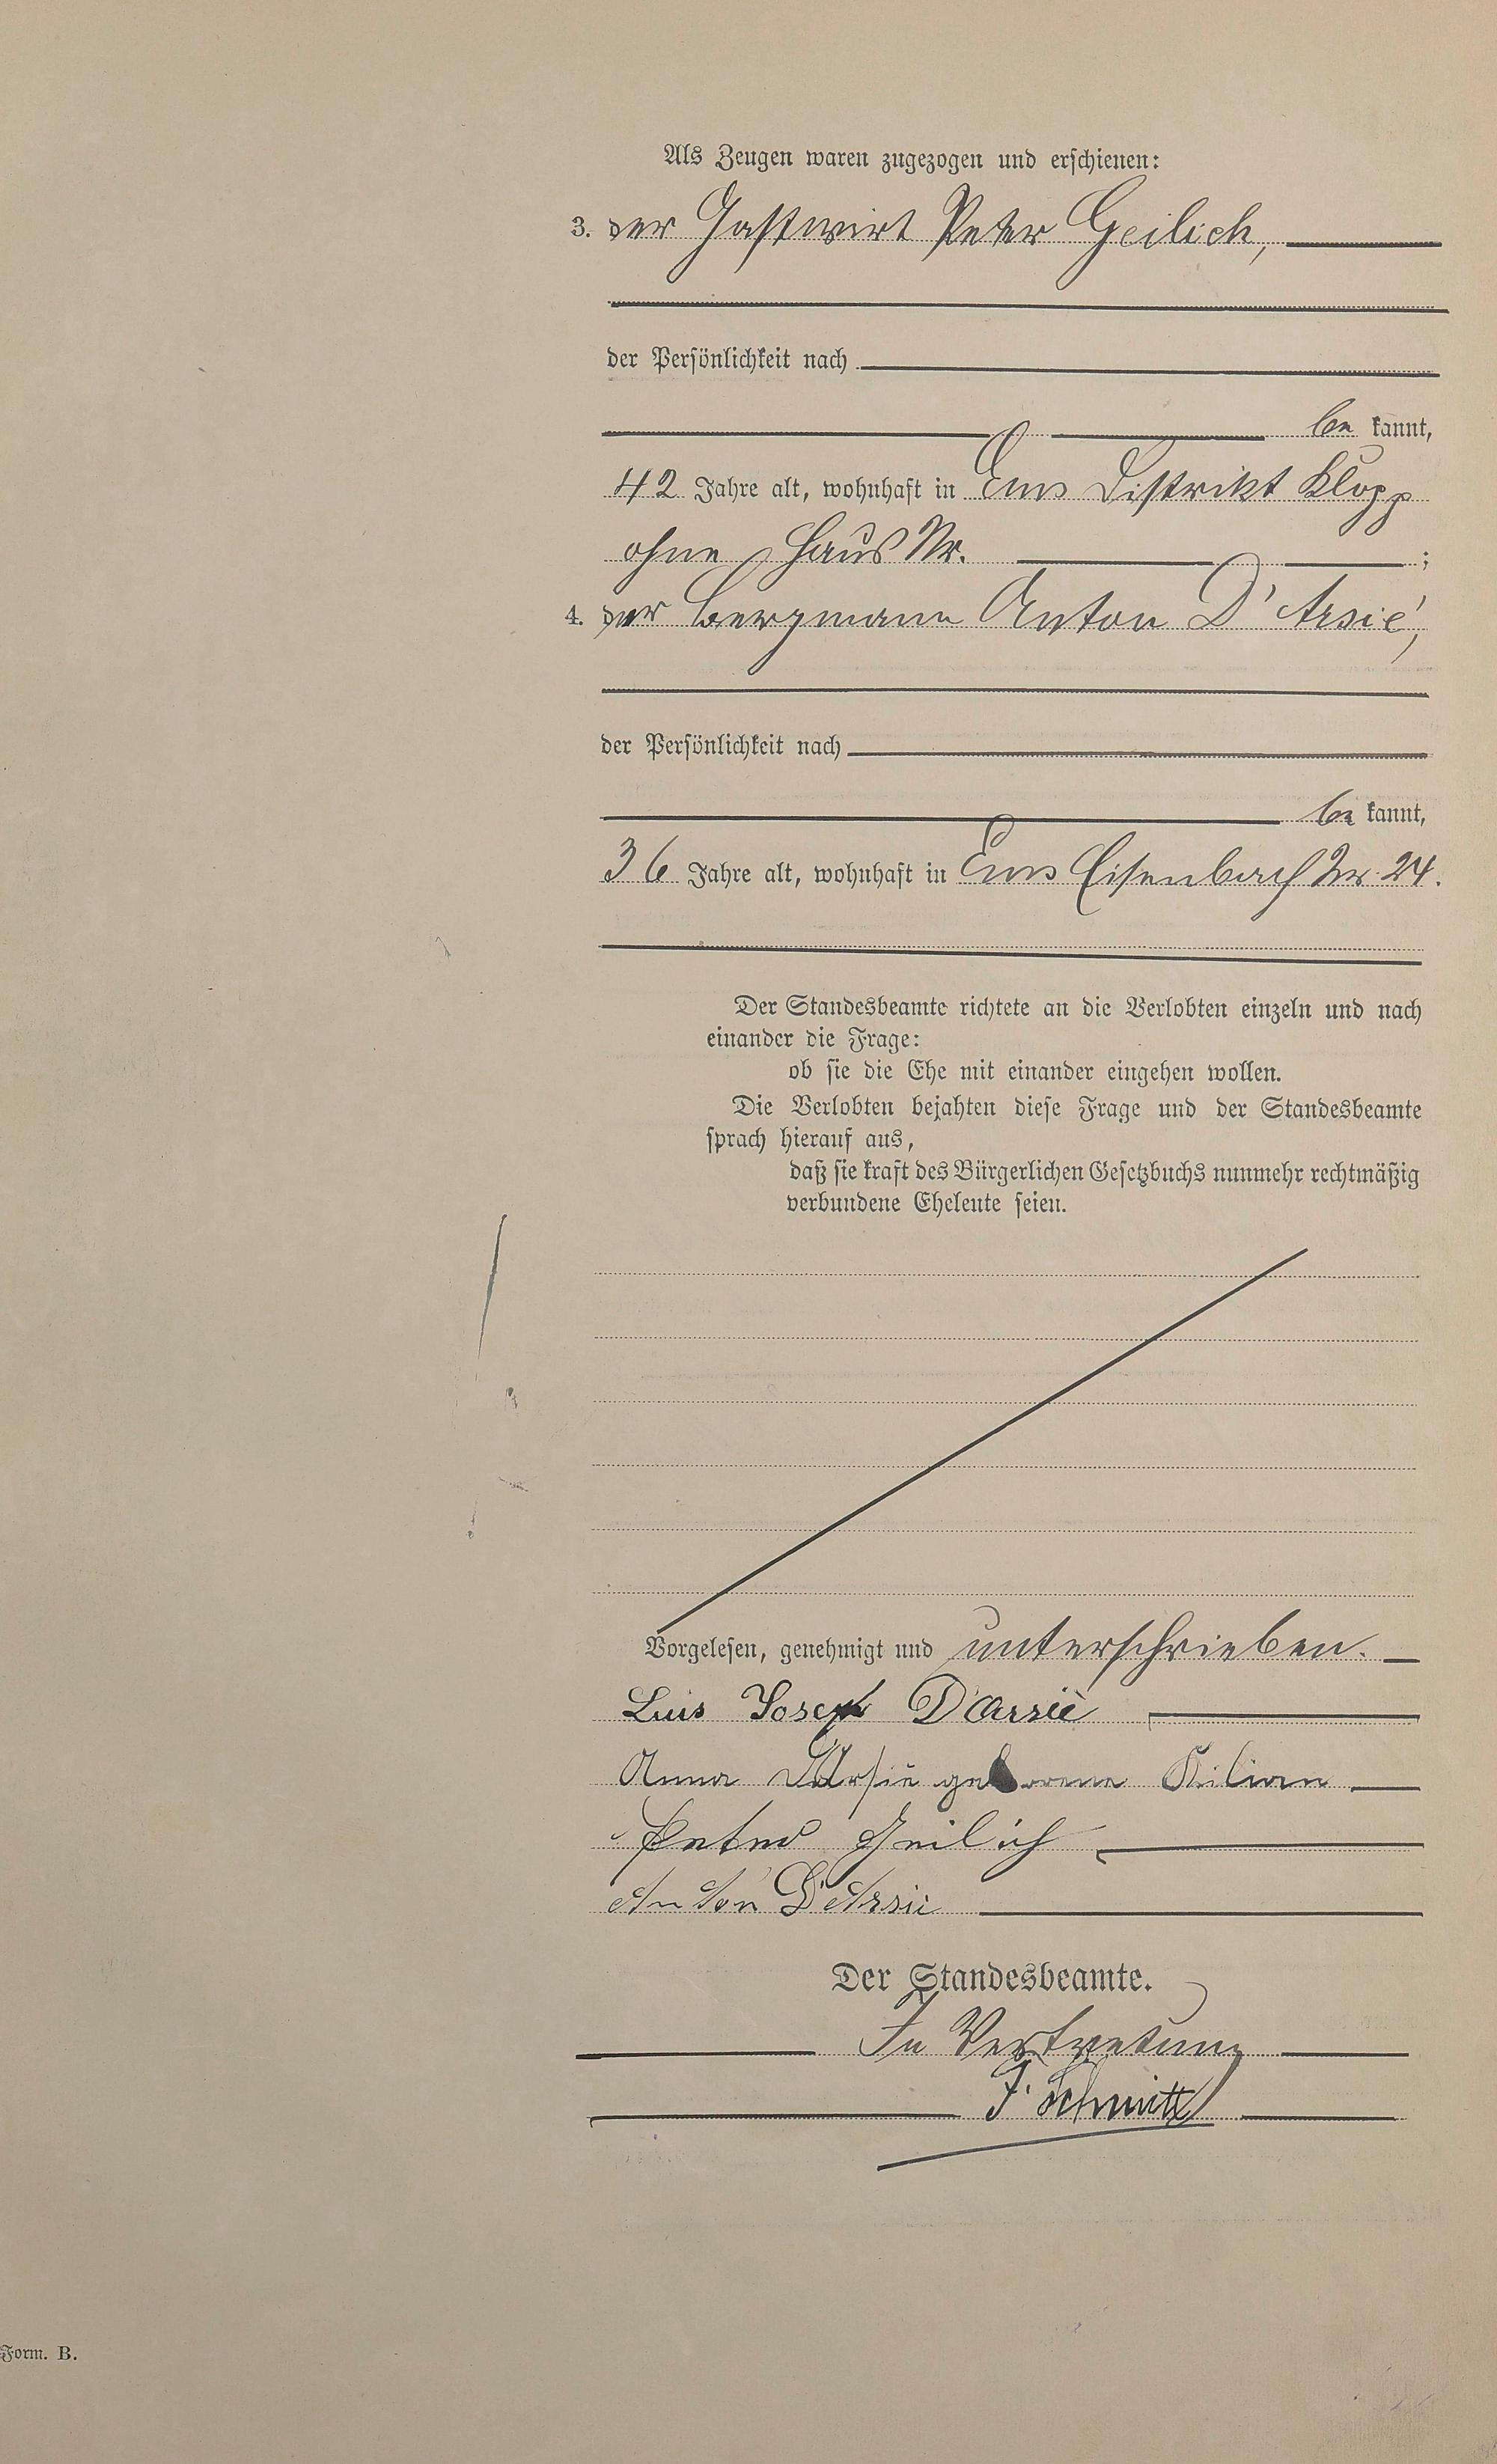 Als Zeugen waren zugezogen und erschienen:
3. der Gastwirt Peter Geilich,
der Persönlichkeit nach
be kannt,
42 Jahre alt, wohnhaft in Ems Distrikt Klopp
ohne Haus Nr. ;
4. der Bergmann Anton D'Arsié,
der Persönlichkeit nach
be kannt,
36 Jahre alt, wohnhaft in Ems Eisenbach Nr. 24.
Der Standesbeamte richtete an die Verlobten einzeln und nach
einander die Frage:
ob sie die Ehe mit einander eingehen wollen.
Die Verlobten bejahten diese Frage und der Standesbeamte
sprach hierauf aus,
daß sie kraft des Bürgerlichen Gesetzbuchs nunmehr rechtmäßig
verbundene Eheleute seien.
Vorgelesen, genehmigt und unterschrieben.
Luis Josep D'Arsiè
Anna DArsie geborene Kilian
Peter Geilich
Anton D'Arsie
Der Standesbeamte.
In Vertretung
J. Schmitt
Form. B.